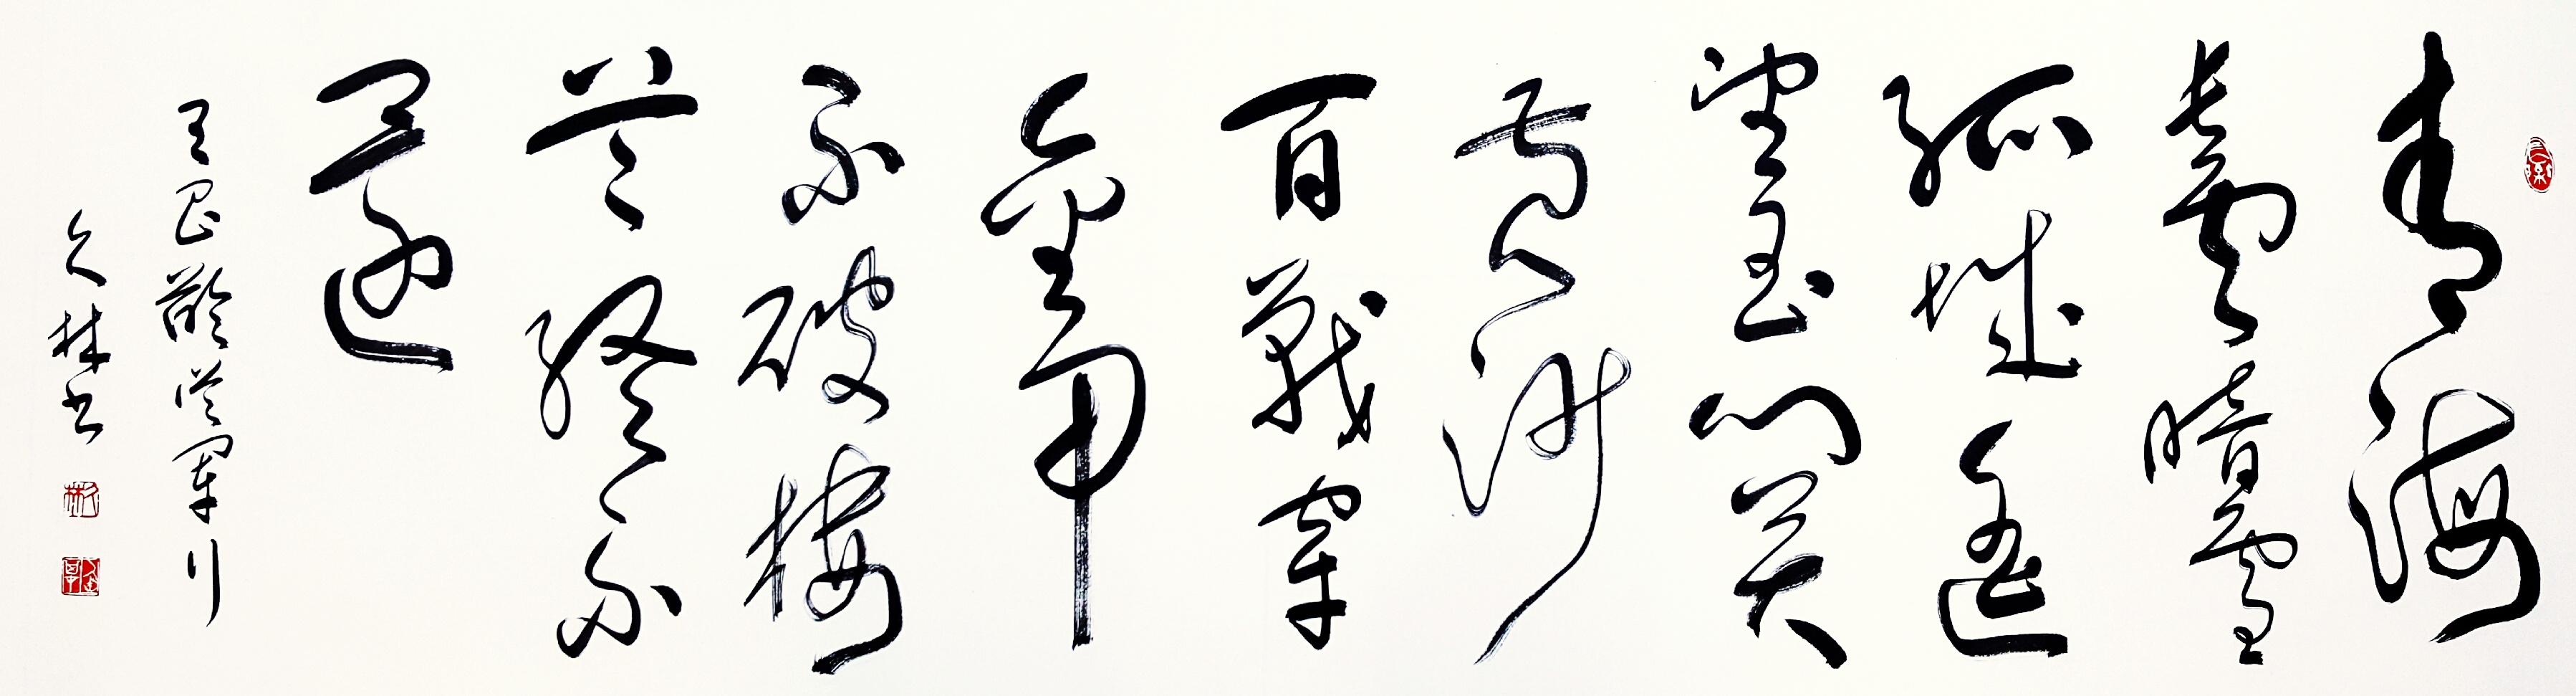 青海
長雲暗雪
孤城遙
望玉門關
黃沙
百戰穿
金甲
不破樓
兰終不
還
王昌齡從軍行
久林书